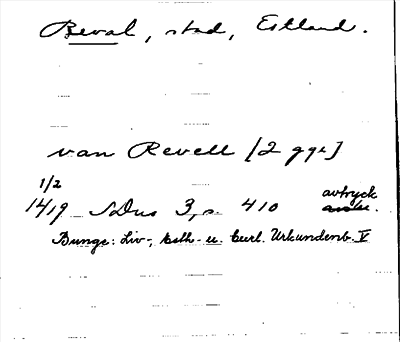 Reval, stad, Estland.
van Revell [2 ggr]
1/2
1419 SDns 3, s. 410 avtryck
Bunge: Liv-, Esth- u. Curl. Urkundenb. V